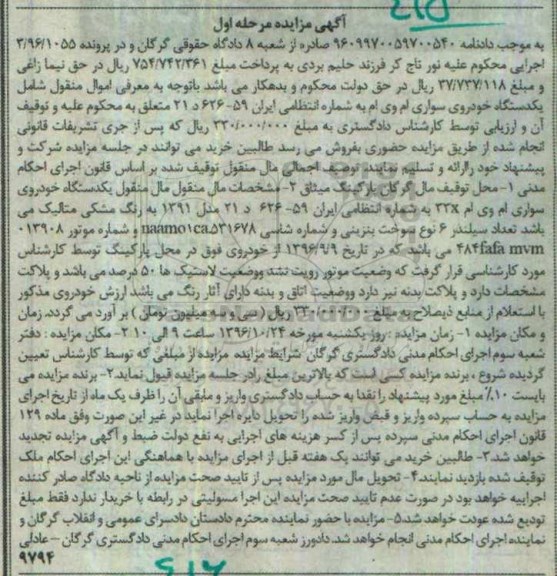 آگهی مزایده مرحله اول
به موجب دادنامه ۹۶۰۹۹۷۰۰۵۹۷۰۰۵۴۰ صادره از شعبه ۸ دادگاه حقوقی گرگان و در پرونده ۳/۹۶/۱۰۵۵
اجرایی محکوم علیه نور تاج کر فرزند حلیم بردی به پرداخت مبلغ ۷۵۴/۷۴۲/۳۶۱ ریال در حق نیما زاغی
و مبلغ ۳۷/۷۳۷/۱۱۸ ریال در حق دولت محکوم و بدهکار می باشد باتوجه به معرفی اموال منقول شامل
یکدستگاه خودروی سواری ام وی ام به شماره انتظامی ایران ۵۹-۶۲۶ د ۲۱ متعلق به محکوم علیه و توقیف
آن و ارزیابی توسط کارشناس دادگستری به مبلغ ۳۳۰/۰۰۰/۰۰۰ ریال که پس از جری تشریفات قانونی
انجام شده از طریق مزایده حضوری بفروش می رسد طالبین خرید می توانند در جلسه مزایده شرکت و
پیشنهاد خود راارائه و تسلیم نمایند توصیف اجمالی مال منقول توقیف شده بر اساس قانون اجرای احکام
مدنی ۱-محل توقیف مال گرگان پارکینگ میثاق ۲-مشخصات مال منقول مال منقول یکدستگاه خودروی
سواری ام وی ام ۳۳x به شماره انتظامی ایران ۵۹- ۶۲۶ د ۲۱ مدل ۱۳۹۱ به رنگ مشکی متالیک می
باشد تعداد سیلندر ۶ نوع سوخت بنزینی و شماره شاسی naam01ca۵۳۱۶۷۸ و شماره موتور ۰۱۳۹۰۸
mvm ۴۸۴fafa می باشد که در تاریخ ۱۳۹۶/۹/۹ از خودروی فوق در محل پارکینگ توسط کارشناس
مورد کارشناسی قرار گرفت که وضعیت موتور رویت نشد ووضعیت لاستیک ها ۵۰ درصد می باشد و پلاکت
مشخصات دارد و پلاکت بدنه نیز دارد ووضعیت اتاق و بدنه دارای آثار رنگ می باشد ارزش خودروی مذکور
با استعلام از منابع ذیصلاح به مبلغ ۳۳۰/۰۰۰/۰۰۰ ریال (سی و سه میلیون تومان) بر آورد می گردد. زمان
و مکان مزایده ۱- زمان مزایده :روز یکشنبه مورخه ۱۳۹۶/۱۰/۲۴ ساعت ۹ الی ۱۰ ۲- مکان مزایده : دفتر
شعبه سوم اجرای احکام مدنی دادگستری گرگان شرایط مزایده مزایده از مبلغی که توسط کارشناس تعیین
گردیده شروع ، برنده مزایده کسی است که بالاترین مبلغ رادر جلسه مزایده قبول نماید ۲- برنده مزایده می
بایست ۱۰٪ مبلغ مورد پیشنهاد را نقدا به حساب دادگستری واریز و مابقی آن را ظرف یک ماه از تاریخ اجرای
مزایده به حساب سپرده واریز و قبض واریز شده را تحویل دایره اجرا نماید در غیر این صورت وفق ماده ۱۲۹
قانون اجرای احکام مدنی سپرده پس از کسر هزینه های اجرایی به نفع دولت ضبط و آگهی مزایده تجدید
خواهد شد.۳- طالبین خرید می توانند یک هفته قبل از اجرای مزایده با هماهنگی این اجرای احکام ملک
توقیف شده بازدید نمایند.۴- تحویل مال مورد مزایده پس از تایید صحت مزایده از ناحیه دادگاه صادر کننده
اجراییه خواهد بود در صورت عدم تایید صحت مزایده این اجرا مسولیتی در رابطه با خریدار ندارد فقط مبلغ
تودیع شده عودت خواهد شد.۵- مزایده با حضور نماینده محترم دادستان دادسرای عمومی و انقلاب گرگان و
نماینده اجرای احکام مدنی انجام خواهد شد. دادورز شعبه سوم اجرای احکام مدنی دادگستری گرگان – عادلی
۹۷۹۴